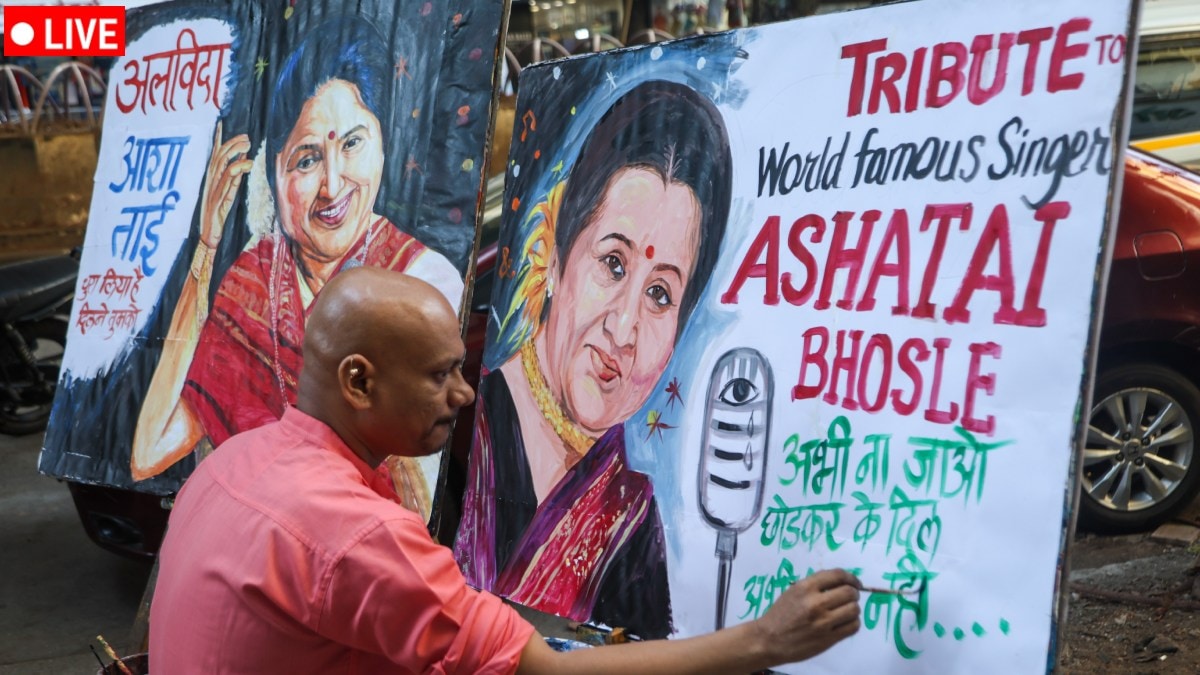 LIVE
अलविदा
आशा
ताई
चुरा लिया है
दिलने तुमको
TRIBUTE TO
World famous Singer
ASHATAI
BHOSLE
अभी ना जाओ
छोडकर के दिल
अभी नही....